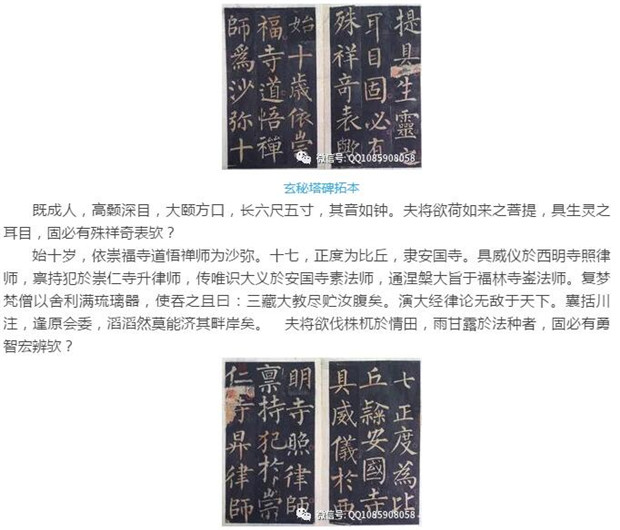 提具生靈之
耳目固必有
殊祥奇表歟
始十歲依崇
福寺道悟禪
師爲沙弥十
微信号: QQ1085908058
玄秘塔碑拓本
既成人，高颡深目，大颐方口，长六尺五寸，其音如钟。夫将欲荷如来之菩提，具生灵之
耳目，固必有殊祥奇表欤？
始十岁，依崇福寺道悟禅师为沙弥。十七，正度为比丘，隶安国寺。具威仪於西明寺照律
师，禀持犯於崇仁寺升律师，传唯识大义於安国寺素法师，通涅槃大旨于福林寺崟法师。复梦
梵僧以舍利满琉璃器，使吞之且曰：三藏大教尽贮汝腹矣。演大经律论无敌于天下。囊括川
注，逢原会委，滔滔然莫能济其畔岸矣。 夫将欲伐株杌於情田，雨甘露於法种者，固必有勇
智宏辨欤？
七正度為比
丘隸安國寺
具威儀於西
明寺照律師
禀持犯於崇
仁寺昇律師
微信号: QQ1085908058